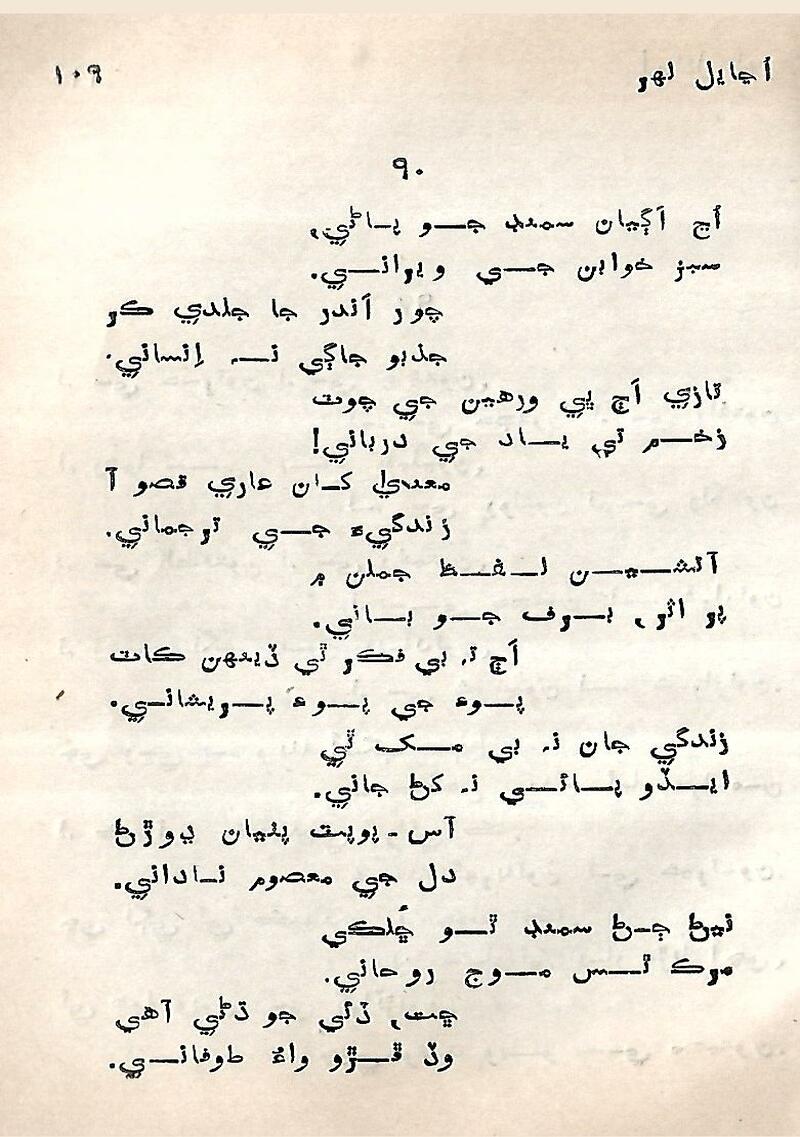 اڃايل لهر
١٠٩
٩٠
اُڃ اَڳيان سمنڊ جو پاڻي،
سبز خوابن جي ويراني.
چور اَندر جا جلدي ڪر
جذبو جاڳي نہ اِنساني.
تازي اَڄ ڀي ورهين جي چوٽ
زخم تي ياد جي درباني!
معنيٰ کان عاري قصو آ
زندگيءَ جي ترجماني.
آتشين لفظ جملن ۾
پر اثر، برف جو بڻائي.
اَڄ تہ بي فڪر ٿي ڏينهن کاٽ
پوءِ جي پوءِ پريشاني.
زندگي جان نہ بي مسڪ ٿي
ايڏو پائسي نہ کڻ جاني.
آس - پوپٽ پٺيان ڊوڙڻ
دل جي معصوم ناداني.
نيڻ ڄڻ سمنڊ ٿو ڇُلڪي
مرڪ تس موج روحاني.
ڇت، ڏئي جو ڌڻي آهي
وڏ ڦڙو واءُ طوفاني.